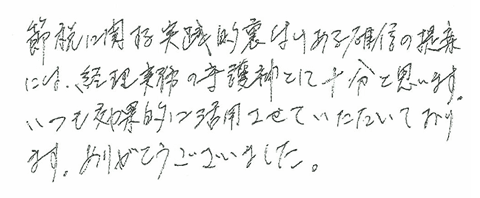 節税に関する実践的裏付けある確信の提案
には、経理実務の守護神として十分と思います。
いつも効果的に活用させていただいており
ます。ありがとうございました。